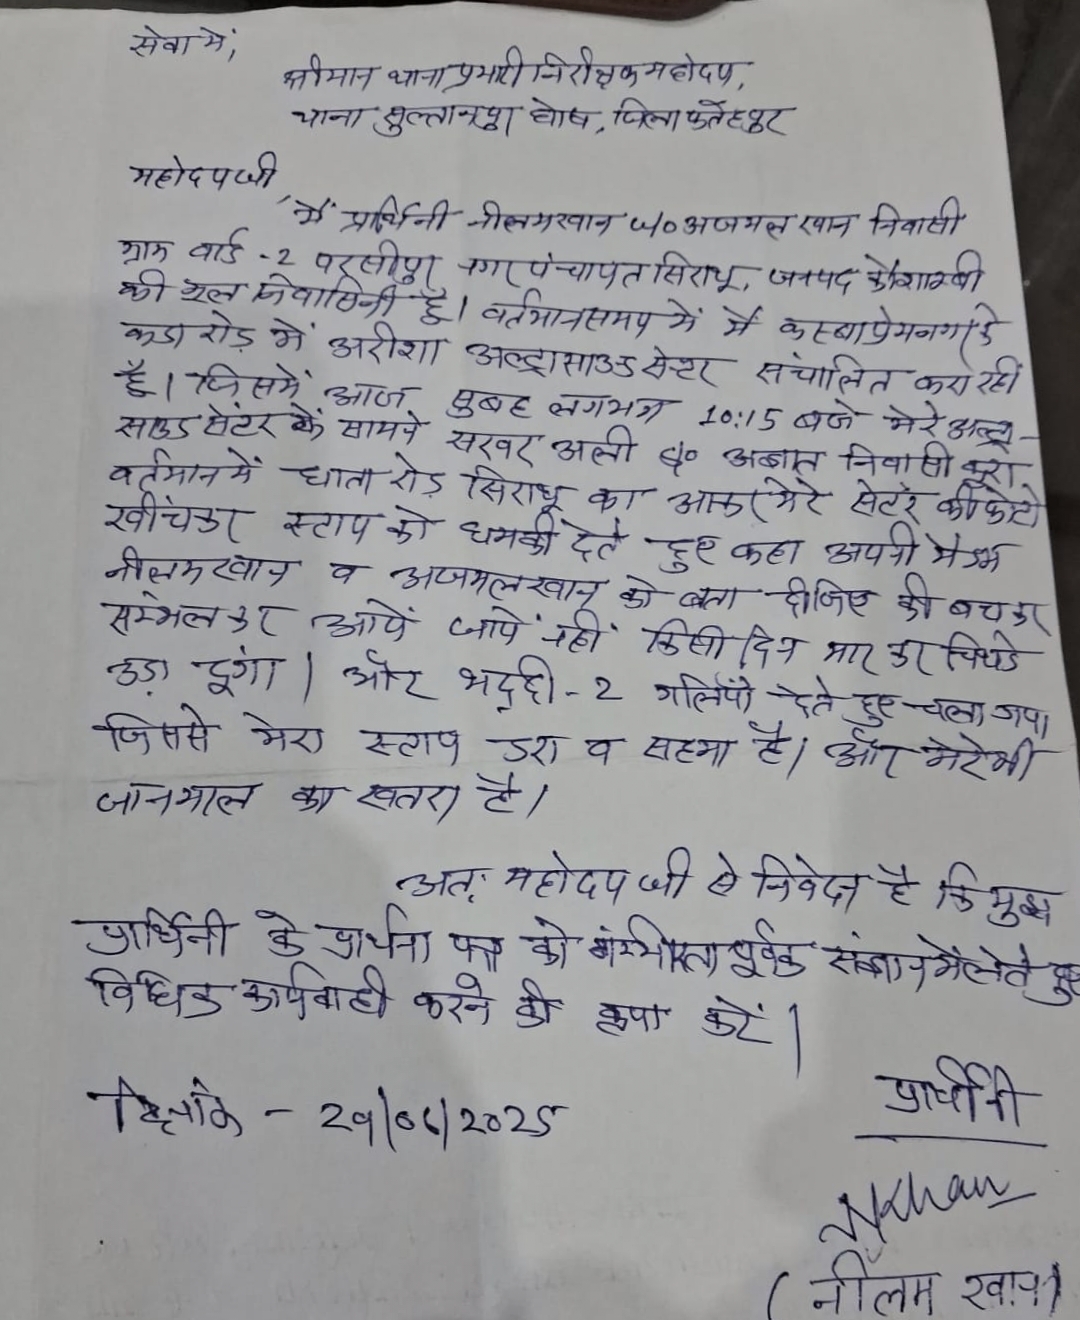 सेवा में,
श्रीमान थाना प्रभारी निरीक्षक महोदय,
थाना सुल्तानपुर घोष, जिला फतेहपुर
महोदय जी,
मैं प्रार्थिनी नीलम खान w/o अजमल खान निवासी
ग्राम वार्ड -2 परसीपुर नगर पंचायत सिराथू, जनपद कौशाम्बी
की मूल निवासिनी हूँ। वर्तमान समय में मैं कस्बा प्रेमनगर के
कड़ा रोड़ में अरीशा अल्ट्रासाउंड सेन्टर संचालित करा रही
हूँ। जिसमें आज सुबह लगभग 10:15 बजे मेरे अल्ट्रा-
साउंड सेंटर के सामने सरवर अली s/o निवासी
वर्तमान में धाता रोड़ सिराथू का आकर मेरे सेंटर की फोटो
खींचकर स्टाप को धमकी देते हुए कहा अपनी मैडम
नीलम खान व अजमल खान को बता दीजिए की बचकर
सम्भल कर आयें जायें नहीं किसी दिन मार कर चिथड़े
उड़ा दूंगा। और भद्दी-2 गलियों देते हुए चला गया
जिससे मेरा स्टाप डरा व सहमा है। और मेरे भी
जानमाल का खतरा है।
अतः महोदय जी से निवेदन है कि मुझ
प्रार्थिनी के प्रार्थना पत्र को गंम्भीरता पूर्वक संज्ञान में लेते हुए
विधिक कार्यवाही करने की कृपा करें।
दिनांक - 29/06/2025
प्रार्थीनी
NKhan
(नीलम खान)